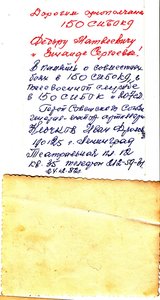 Дорогим однополчанам
150 СИБОКД
Федору Матвеевичу
и Зинаиде Сергеевне!
В память о совместных
боях в 150 СИБОКД и
послевоенной службе
в 150 СИБОК и
Герой Советского Союза
генерал-майор артиллерии
Клочков Иван
190125 г. Ленинград
Театральная пл 12
кв 35 телефон